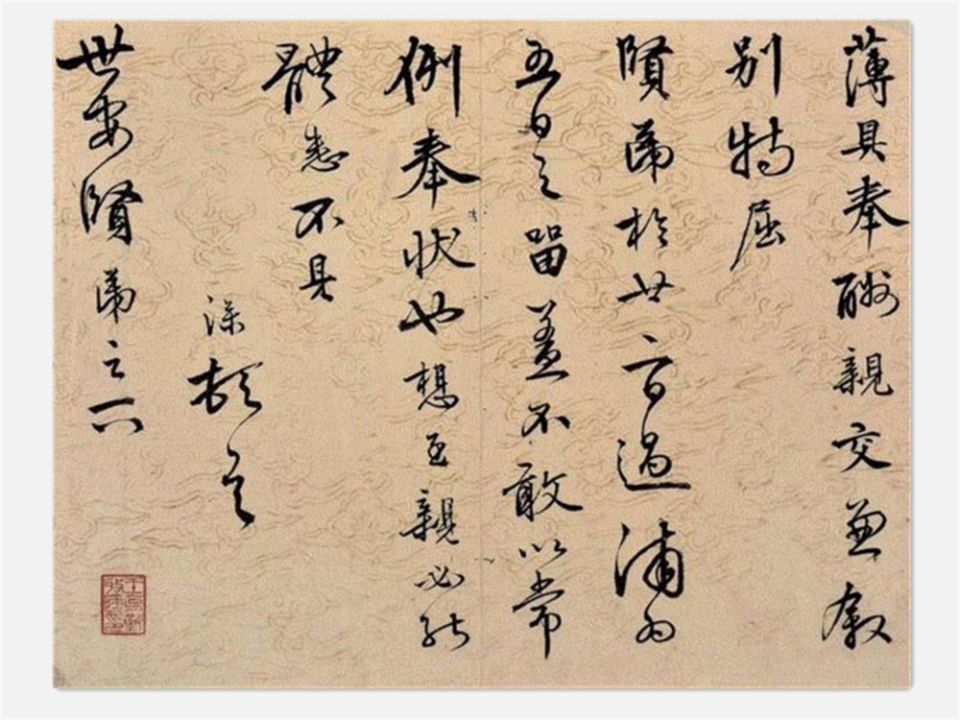 薄具奉酬親交兼敘
別特屈
賢弟於廿二日過浦為
五日之留蓋不敢以常
例奉狀也想至親必能
體悉不具
深頓首
世安賢弟足下